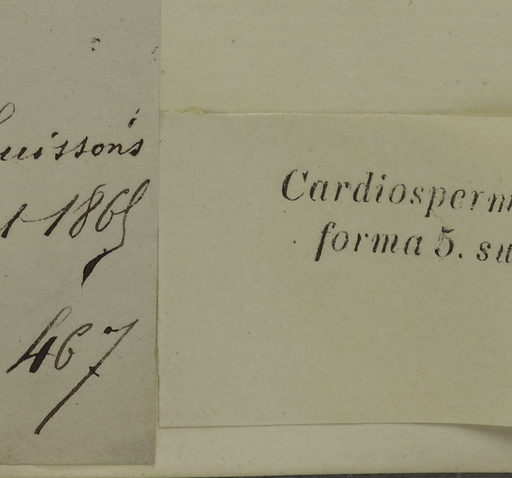 uissons
1865
467
Cardiosperm
forma 5. su